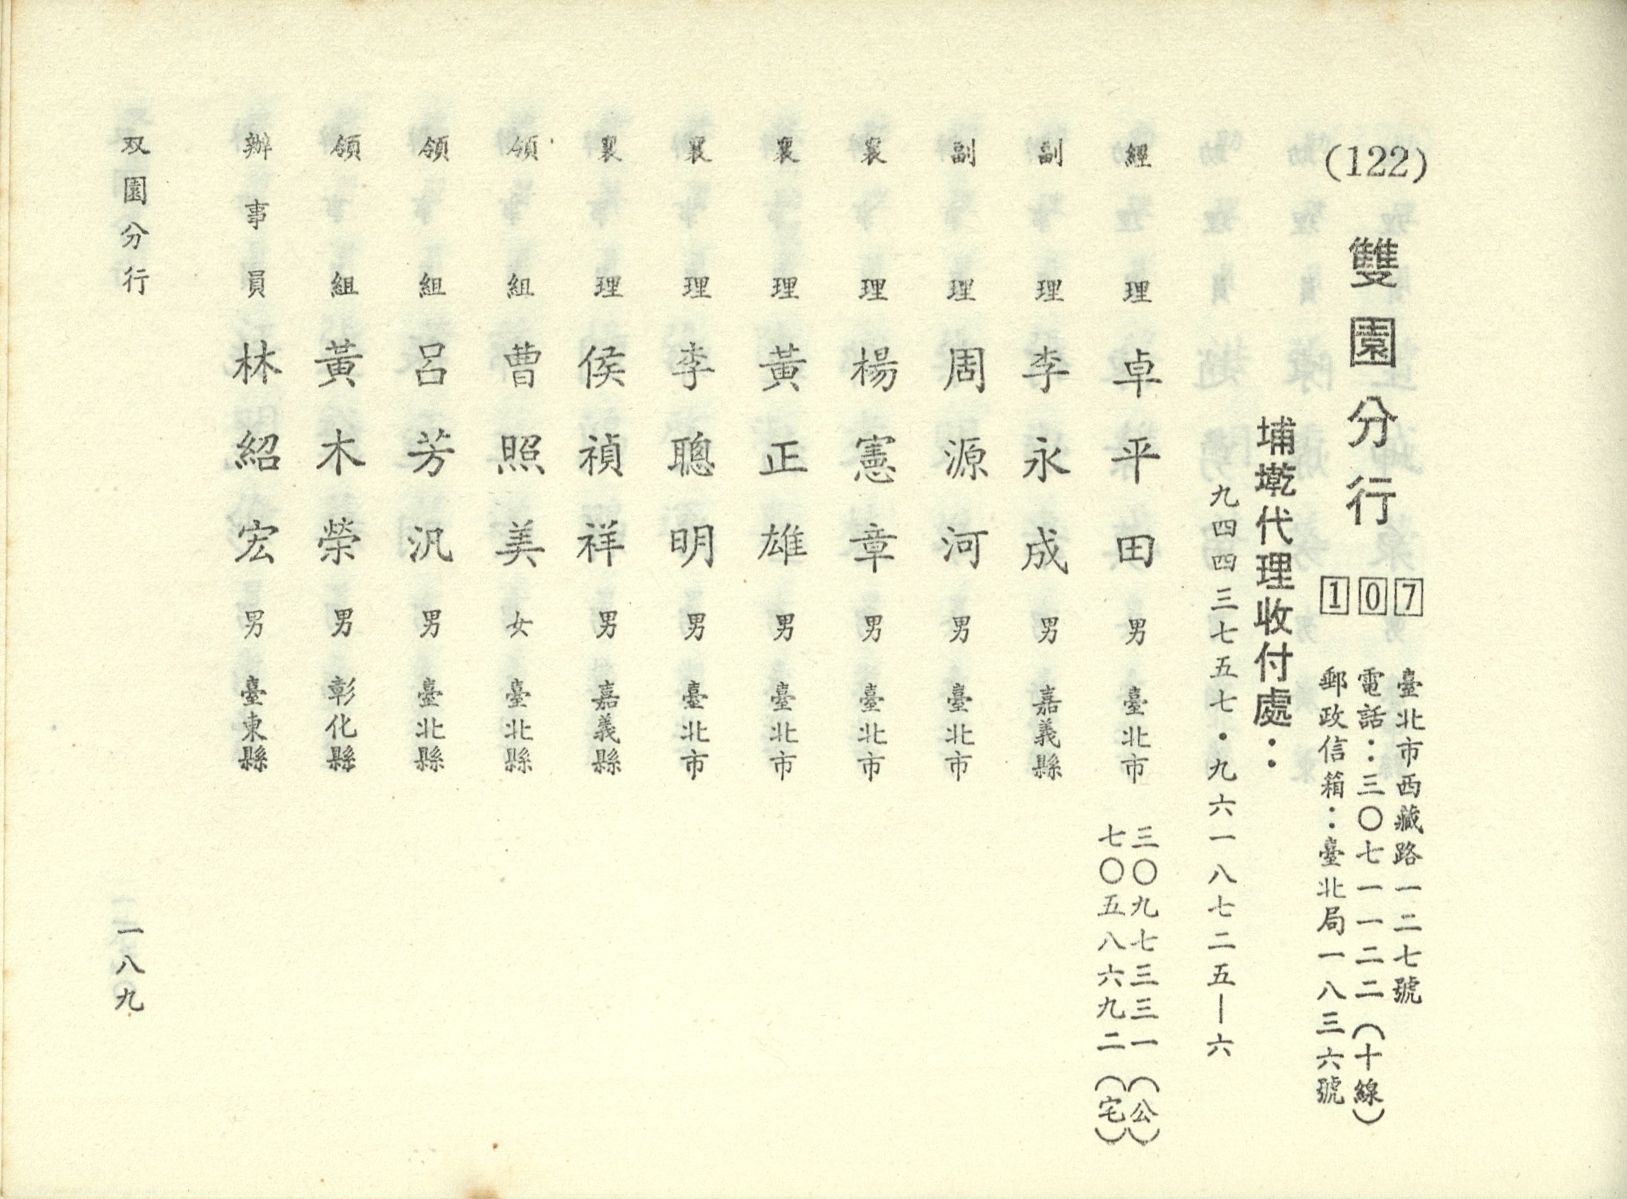 (122) 雙園分行 107
臺北市西藏路一二七號
電話：三〇七一一二二（十線）
郵政信箱：臺北局一八三六號
埔墘代理收付處：
九四四三七五七・九六一八七二五—六
經理 卓平田 男 臺北市 三〇九七三三一（公）
七〇五八六九二（宅）
副理 李永成 男 嘉義縣
副理 周源河 男 臺北市
襄理 楊憲章 男 臺北市
襄理 黃正雄 男 臺北市
襄理 李聰明 男 臺北市
襄理 侯禎祥 男 嘉義縣
領組 曹照美 女 臺北縣
領組 呂芳汎 男 臺北縣
領組 黃木榮 男 彰化縣
辦事員 林紹宏 男 臺東縣
双園分行
一八九